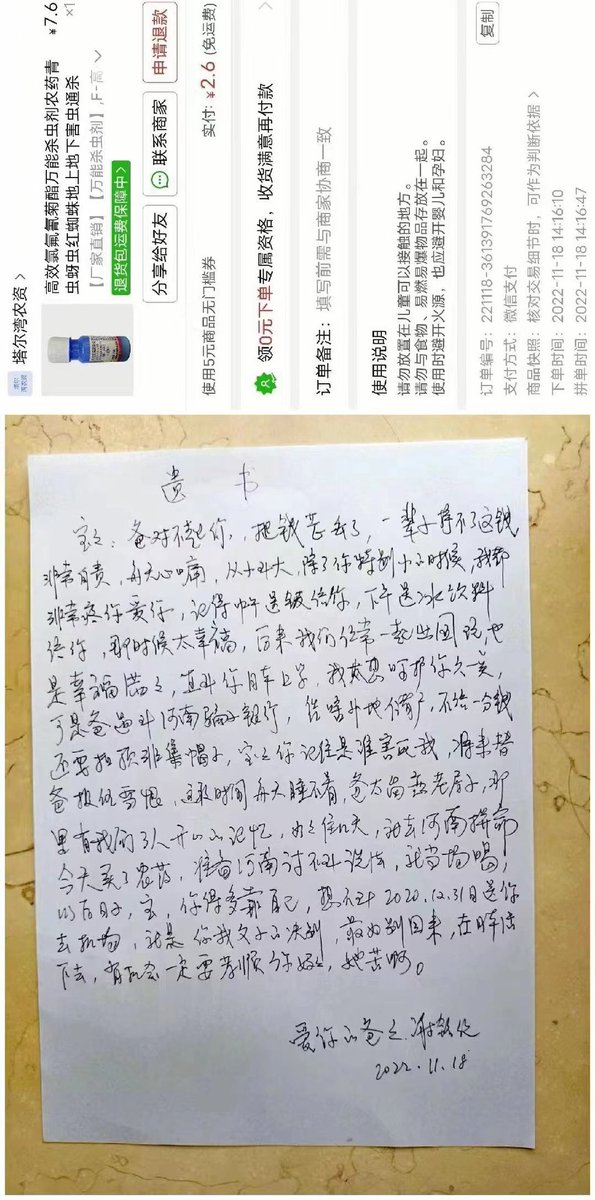 塔尔湾农资 >
高效氯氟氰菊酯万能杀虫剂农药青
虫蚜虫红蜘蛛地上地下害虫通杀
¥7.6
×1
【厂家直销】【万能杀虫剂】,F-高
退货包运费保障中 >
分享给好友
联系商家
申请退款
使用5元商品无门槛券
实付: ¥2.6 (免运费)
领0元下单专属资格，收货满意再付款 >
订单备注： 填写前需与商家协商一致
使用说明
请勿放置在儿童可以接触的地方。
请勿与食物、易燃易爆物品存放在一起。
使用时避开火源，也应避开婴儿和孕妇。
订单编号: 221118-361391769263284
复制
支付方式: 微信支付
商品快照: 核对交易细节时，可作为判断依据 >
下单时间: 2022-11-18 14:16:10
拼单时间: 2022-11-18 14:16:47
遗 书
宝宝：爸对不起你，把钱丢了，一辈子挣不了这钱
非常自责，每天心痛，从小到大，除了你特别小的时候，我都
非常疼你爱你，记得中午送饭给你，下午送冰饮料
给你，那时候太幸福，后来我们经常一起出国玩也
是幸福满满，直到你日本上学，我太想呵护你久矣，
可是爸遇到河南骗子银行，给啥外地储户，不给一分钱
还要扣顶非集帽子，宝宝你记住是谁害死我，将来替
爸报仇雪恨，这段时间每天睡不着，爸太留恋老房子，那
里有我们3人开心的记忆，就去河南拼命
今天买了农药，准备河南讨不到说法，就当场喝，
以后日子，宝，你得多靠自己，想不到2020.12.31日送你
去机场，就是你我父子的决别，最好别回来，在日本活
下去，有机会一定要孝顺你妈妈，她苦啊。
爱你的爸爸
2022.11.18